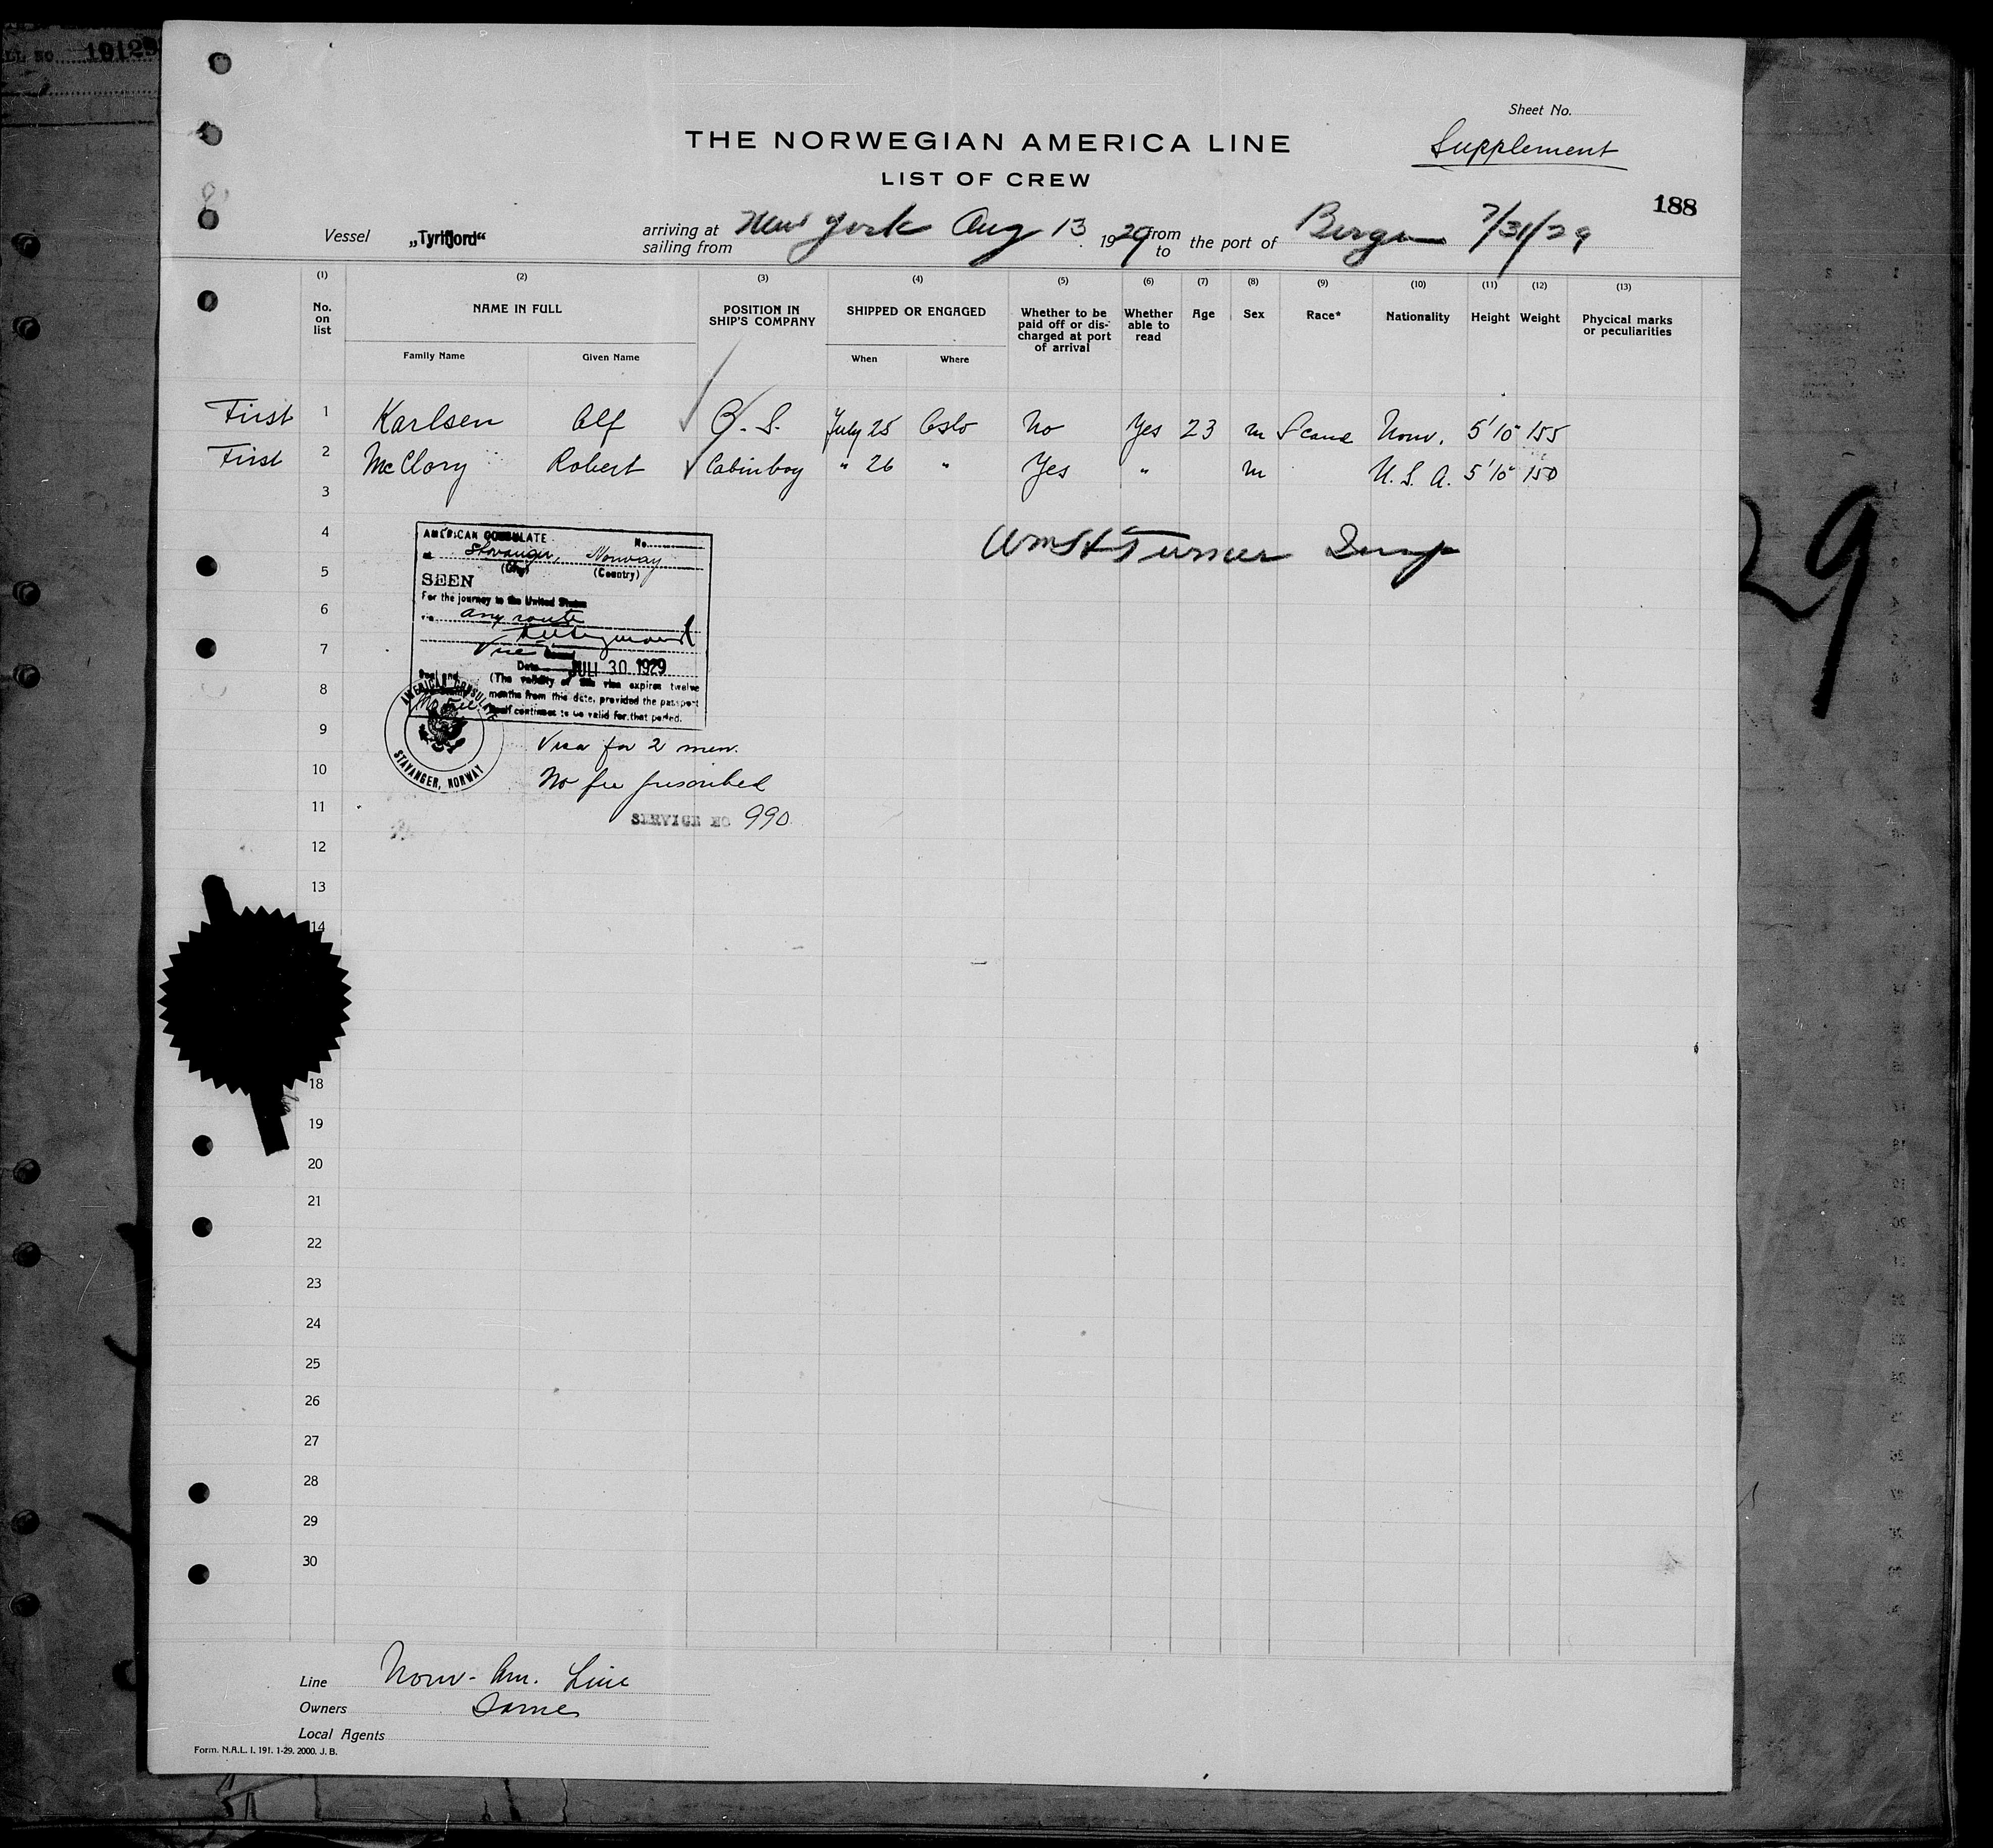 LL NO 10129
Sheet No.
Supplement
THE NORWEGIAN AMERICA LINE
LIST OF CREW
188
Vessel „Tyrifjord“ arriving at sailing from New York Aug 13 1929 from to the port of Bergen 7/31/29
(1) (2) (3) (4) (5) (6) (7) (8) (9) (10) (11) (12) (13)
No. on list NAME IN FULL POSITION IN SHIP'S COMPANY SHIPPED OR ENGAGED Whether to be paid off or dis-charged at port of arrival Whether able to read Age Sex Race* Nationality Height Weight Phycical marks or peculiarities
Family Name Given Name When Where
First 1 Karlsen Alf O. S. July 25 Oslo No Yes 23 m Scand Norw. 5'10" 155
First 2 McClory Robert Cabinboy " 26 " Yes " m U. S. A. 5'10" 150
3
4
5
6
7
8
9
10
11
12
13
14
18
19
20
21
22
23
24
25
26
27
28
29
30
Wm H Turner Insp
AMERICAN CONSULATE No.
at Stavanger, Norway
(City) (Country)
SEEN
For the journey to the United States
via any route
Vice Consul
Date JUL 30 1929
(The validity of this visa expires twelve
months from this date, provided the passport
itself continues to be valid for that period.
Seal and
No Fee
AMERICAN CONSULATE
STAVANGER, NORWAY
Visa for 2 men.
No fee prescribed
SERVICE NO 990
29
Line Norw- Am. Line
Owners Same
Local Agents
Form. N.A.L. I. 191. 1-29. 2000. J. B.